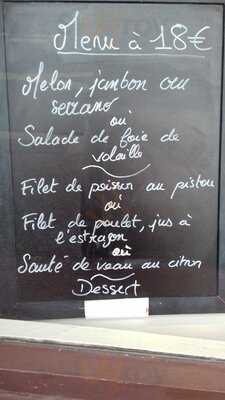 Menu à 18€
Melon, jambon cru
serrano
ou
Salade de foie de
volaille
Filet de poisson au pistou
ou
Filet de poulet, jus à
l'estragon
ou
Sauté de veau au citron
Dessert